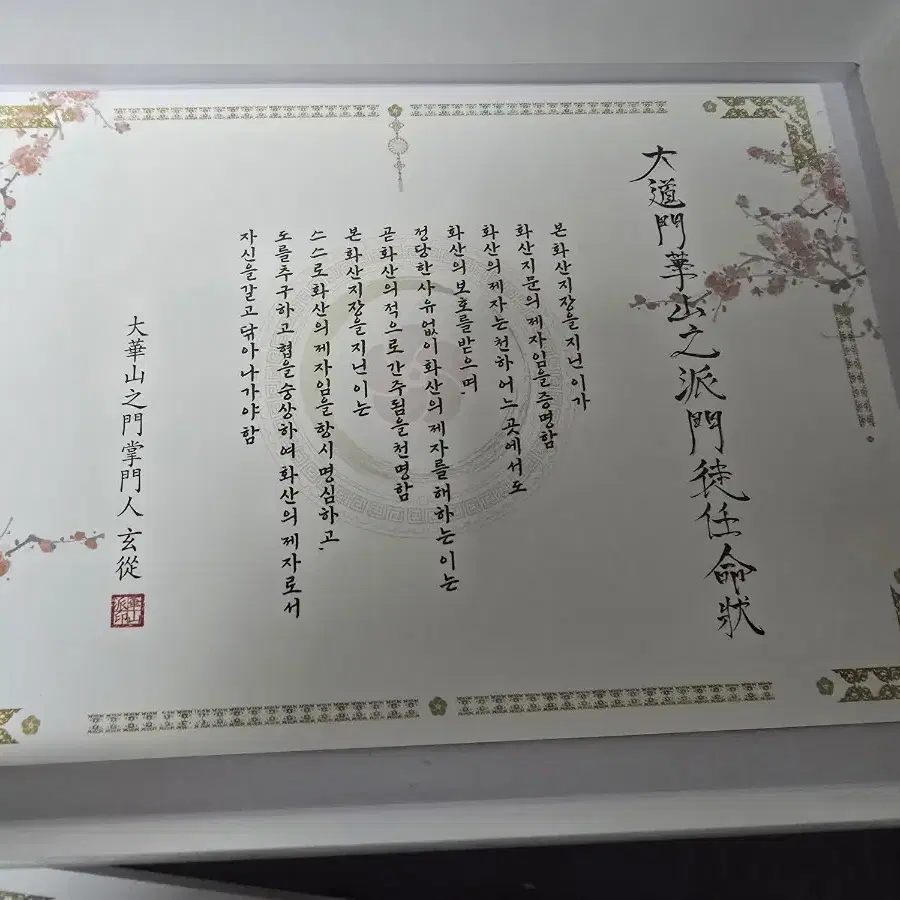 大道門華山之派門徒任命狀
본 화산지장을 지닌 이가
화산지문의 제자임을 증명함
화산의 제자는 천하 어느 곳에서도
화산의 보호를 받으며,
정당한 사유 없이 화산의 제자를 해하는 이는
곧 화산의 적으로 간주됨을 천명함
본 화산지장을 지닌 이는
스스로 화산의 제자임을 항시 명심하고,
도를 추구하고 협을 숭상하여 화산의 제자로서
자신을 갈고 닦아 나가야 함
大華山之門掌門人 玄從
華山派印